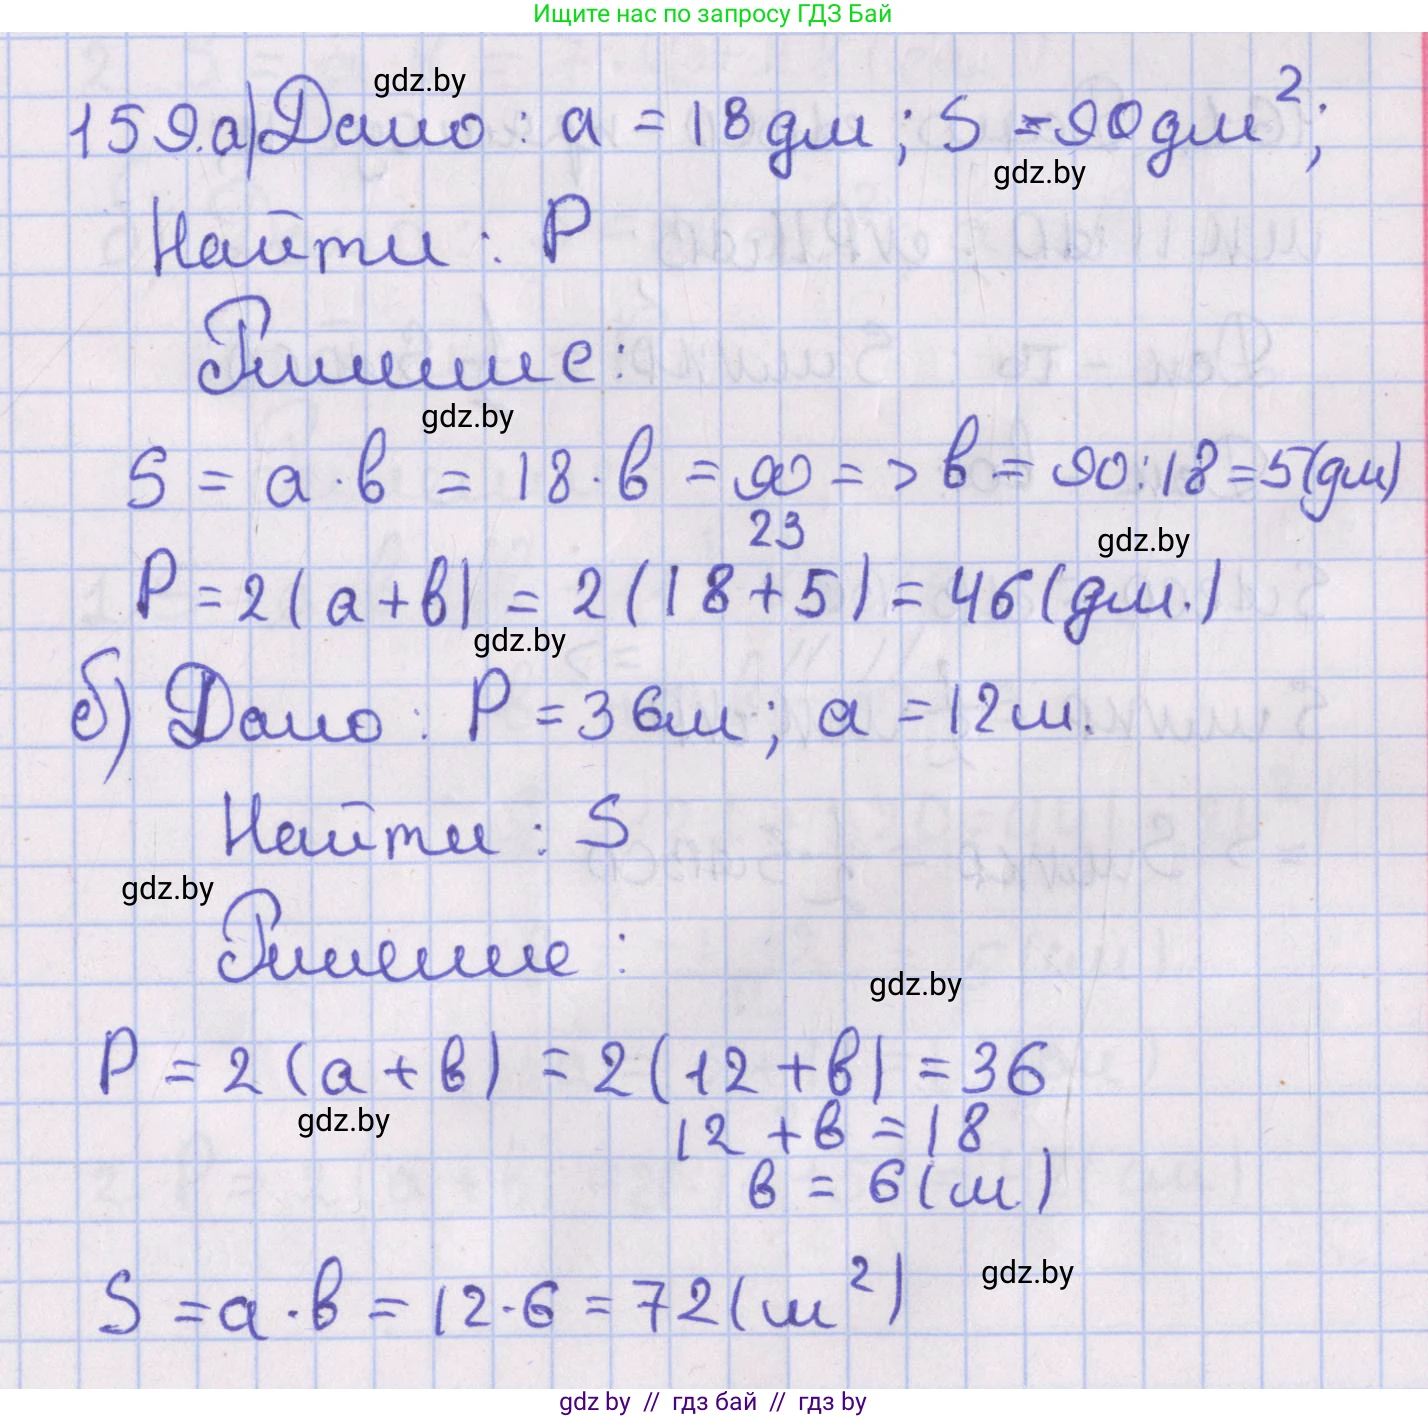 Ищите нас по запросу ГДЗ Бай
gdz.by
159.а) Дано: а = 18 дм; S = 90 дм²;
gdz.by
Найти: Р
Решение:
gdz.by
S = а · в = 18 · в = 90 => в = 90:18 = 5(дм)
23
gdz.by
Р = 2(а+в) = 2(18+5) = 46(дм.)
gdz.by
б) Дано: Р = 36м; а = 12м.
Найти: S
gdz.by
Решение:
gdz.by
Р = 2(а+в) = 2(12+в) = 36
gdz.by
12 + в = 18
в = 6(м.)
gdz.by
S = а · в = 12 · 6 = 72(м²)
gdz by // гдз бай // гдз by